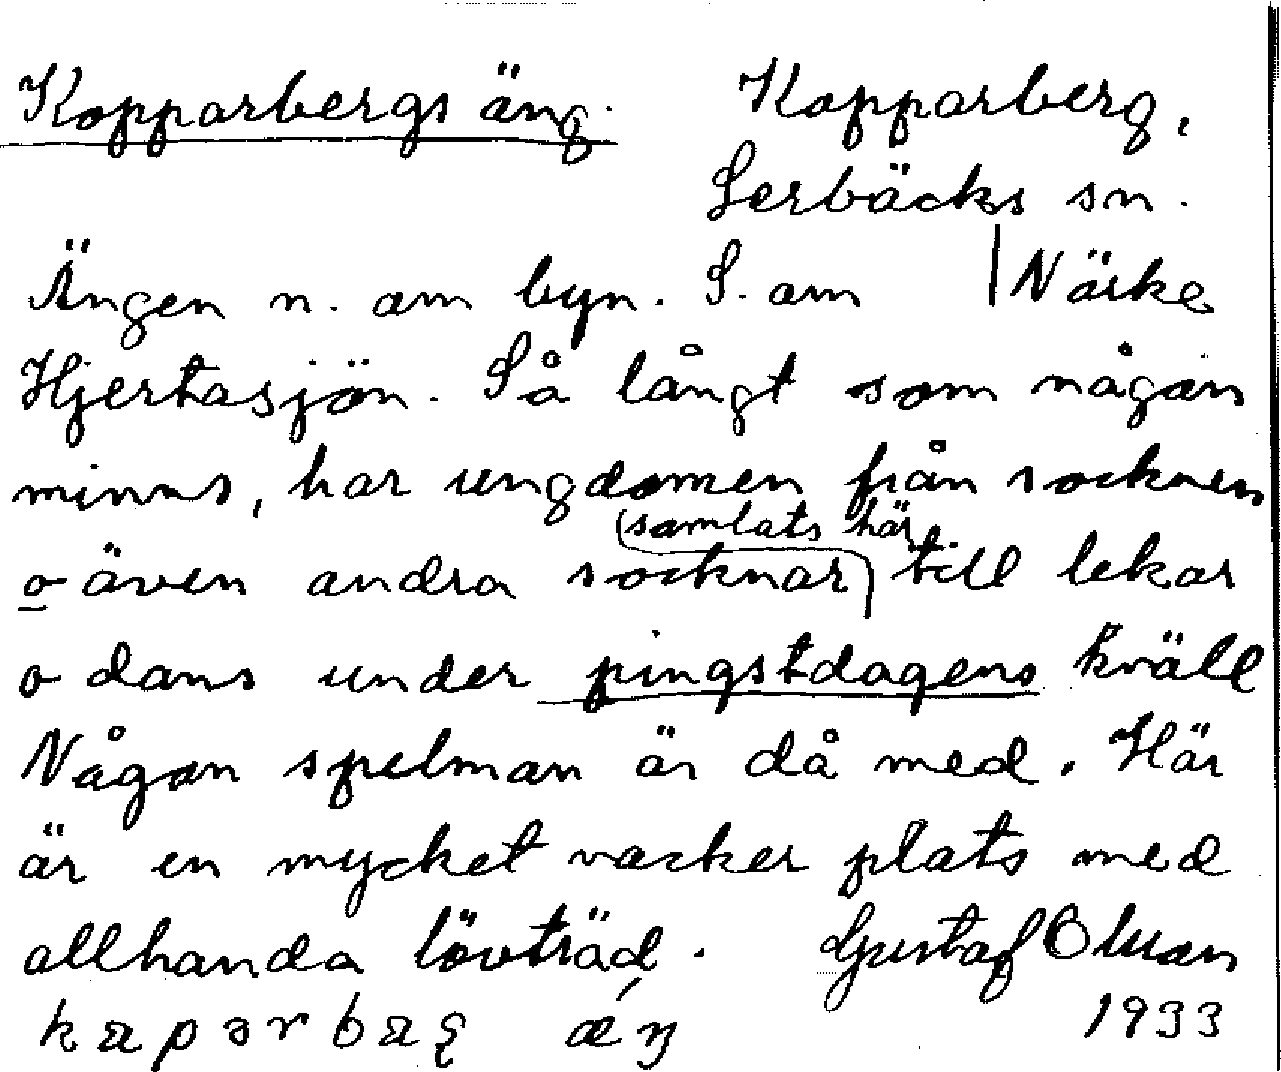 Kopparbergs äng. Kopparberg,
Lerbäcks sn.
Ängen n. om byn. S. om | Närke
Hjertasjön. Så långt som någon
minns, har ungdomen från socknen
samlats här
o även andra socknar till lekar
o dans under pingstdagens kväll
Någon spelman är då med. Här
är en mycket vacker plats med
allhanda lövträd. Gustaf Olsson
1933